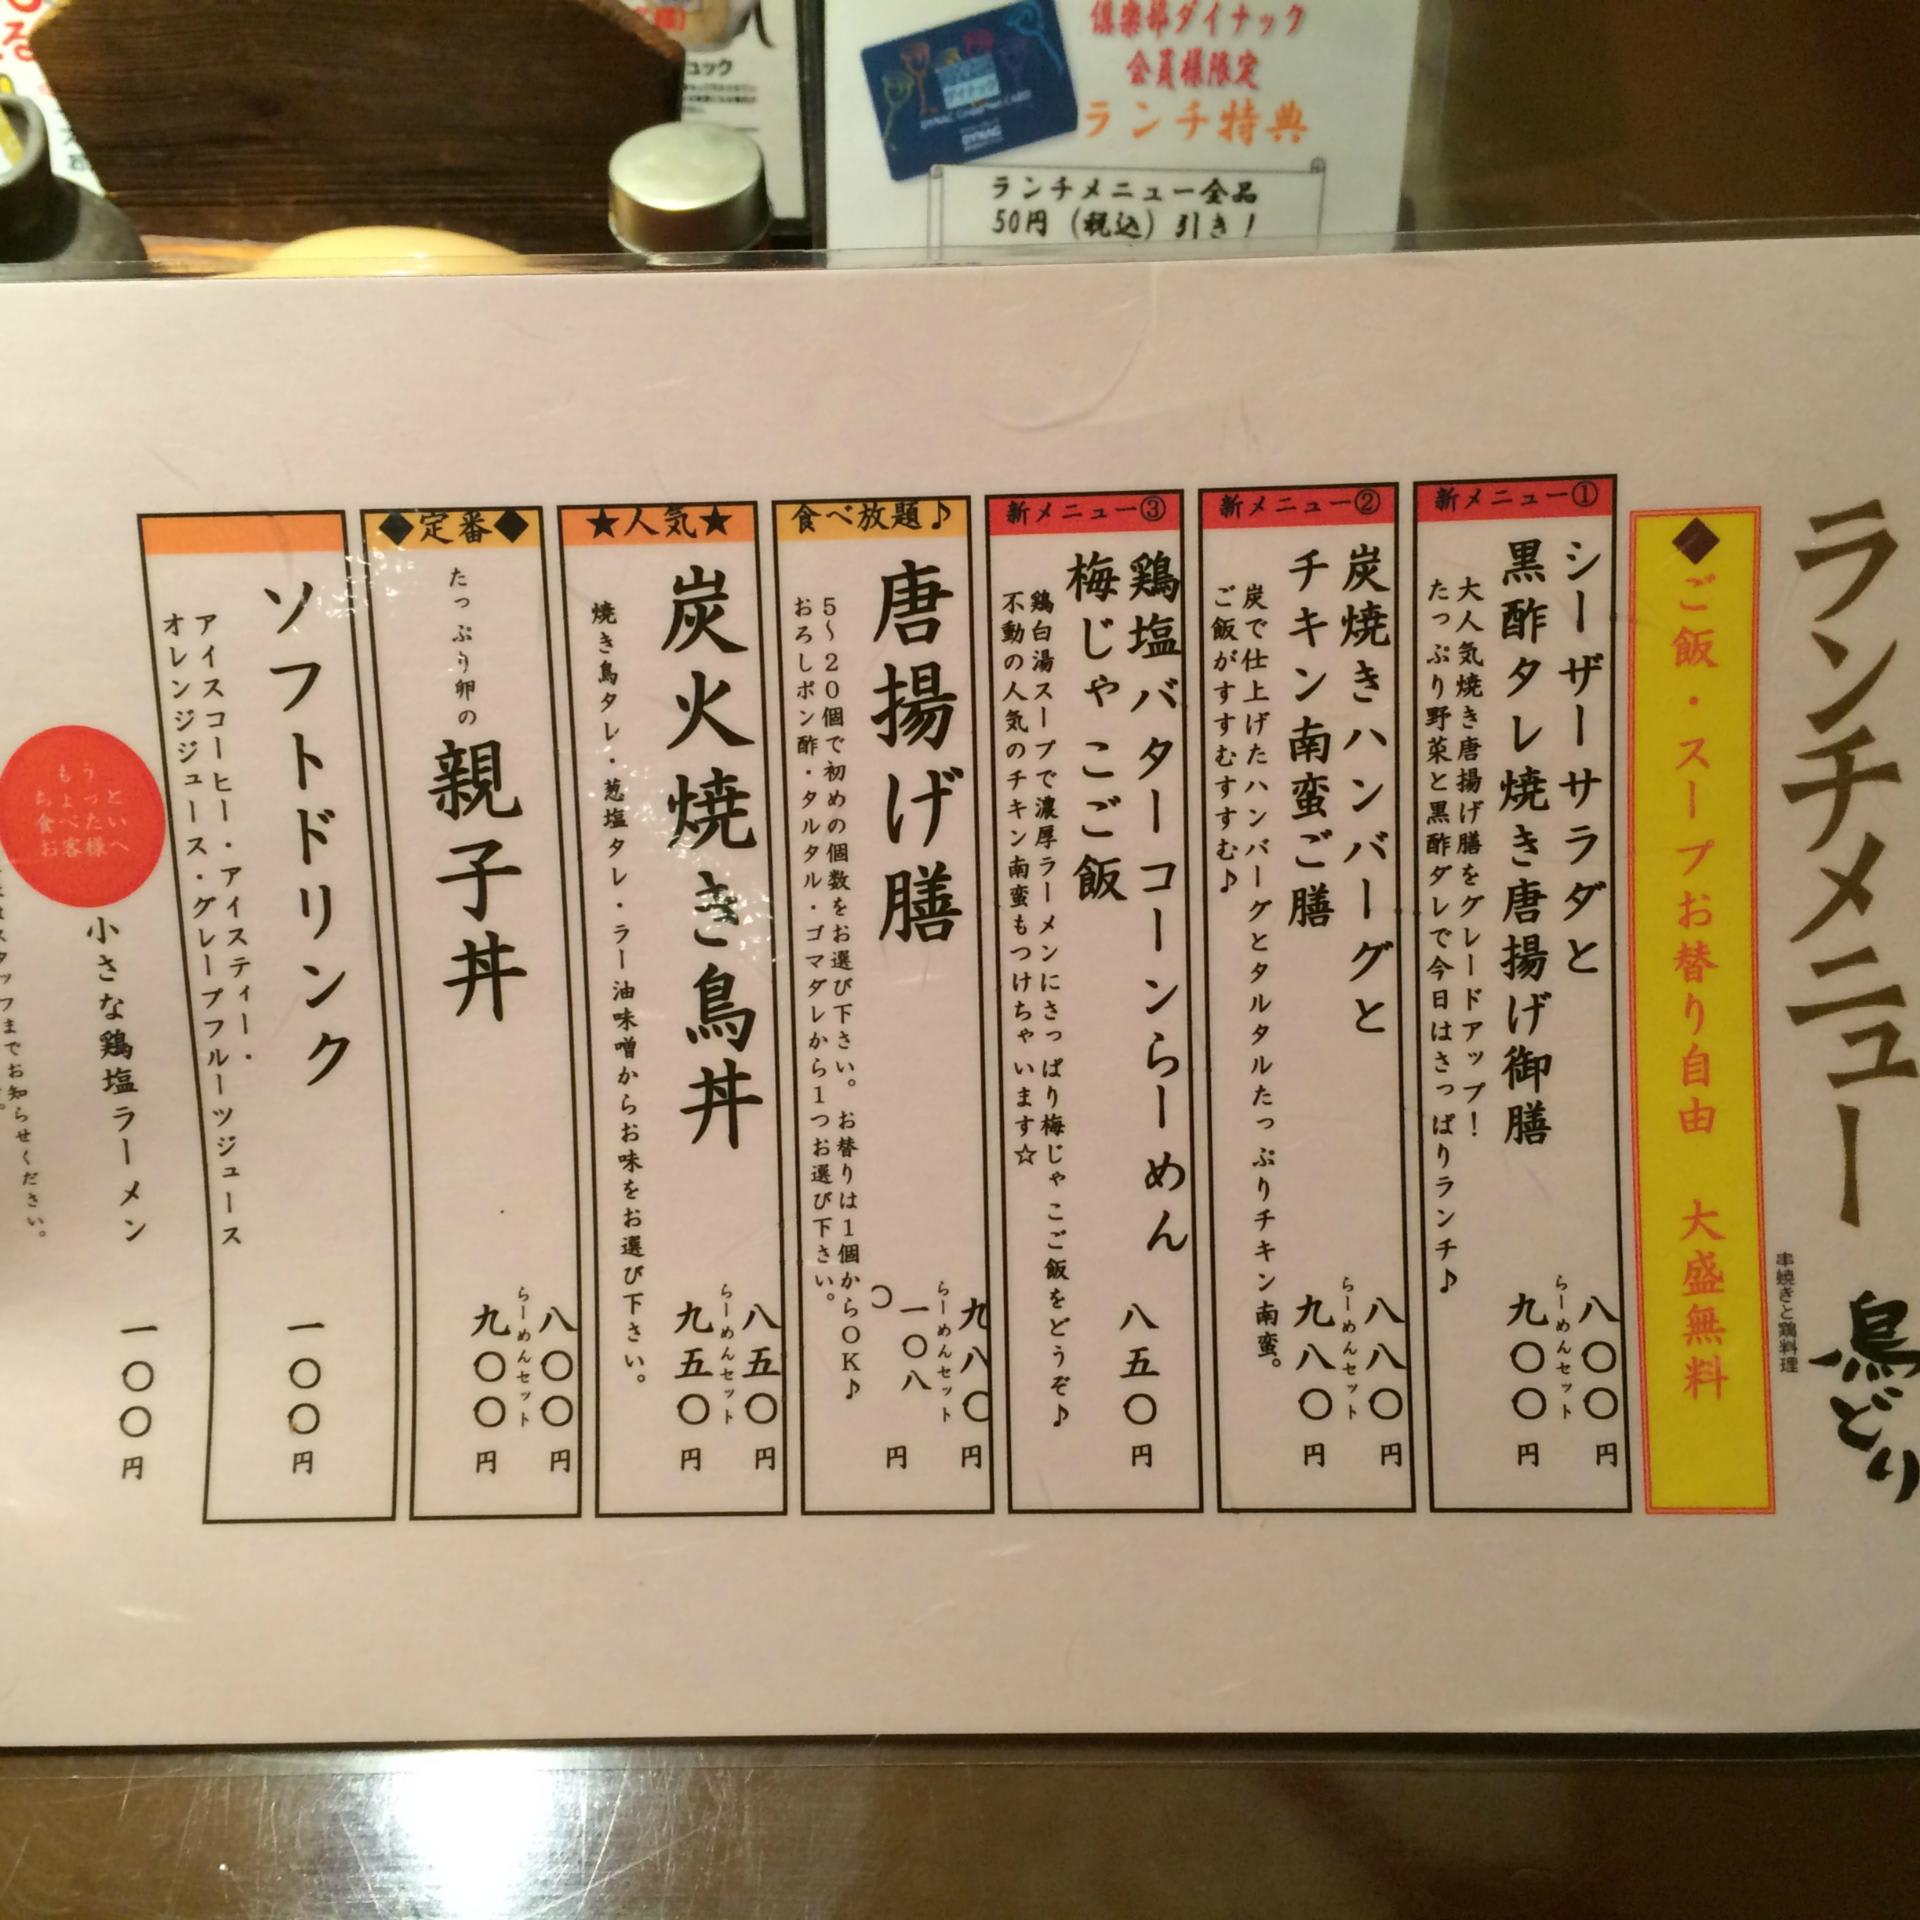 倶楽部ダイナック
会員様限定
ランチ特典
ランチメニュー全品
50円（税込）引き！
ランチメニュー
串焼きと鶏料理
鳥どり
◆ご飯・スープお替り自由　大盛無料
新メニュー①
シーザーサラダと
黒酢タレ焼き唐揚げ御膳
大人気焼き唐揚げ膳をグレードアップ！
たっぷり野菜と黒酢ダレで今日はさっぱりランチ♪
八〇〇円
らーめんセット
九〇〇円
新メニュー②
炭焼きハンバーグと
チキン南蛮ご膳
炭で仕上げたハンバーグとタルタルたっぷりチキン南蛮。
ご飯がすすむすすむ♪
八八〇円
らーめんセット
九八〇円
新メニュー③
鶏塩バターコーンらーめん
梅じゃこご飯
鶏白湯スープで濃厚ラーメンにさっぱり梅じゃこご飯をどうぞ♪
不動の人気のチキン南蛮もつけちゃいます☆
八五〇円
食べ放題♪
唐揚げ膳
５～２０個で初めの個数をお選び下さい。お替りは１個からＯＫ♪
おろしポン酢・タルタル・ゴマダレから１つお選び下さい。
九八〇円
らーめんセット
一〇八〇円
★人気★
炭火焼き鳥丼
焼き鳥タレ・葱塩タレ・ラー油味噌からお味をお選び下さい。
八五〇円
らーめんセット
九五〇円
◆定番◆
たっぷり卵の
親子丼
八〇〇円
らーめんセット
九〇〇円
ソフトドリンク
アイスコーヒー・アイスティー・
オレンジジュース・グレープフルーツジュース
一〇〇円
もう
ちょっと
食べたい
お客様へ
小さな鶏塩ラーメン
一〇〇円
スタッフまでお知らせください。